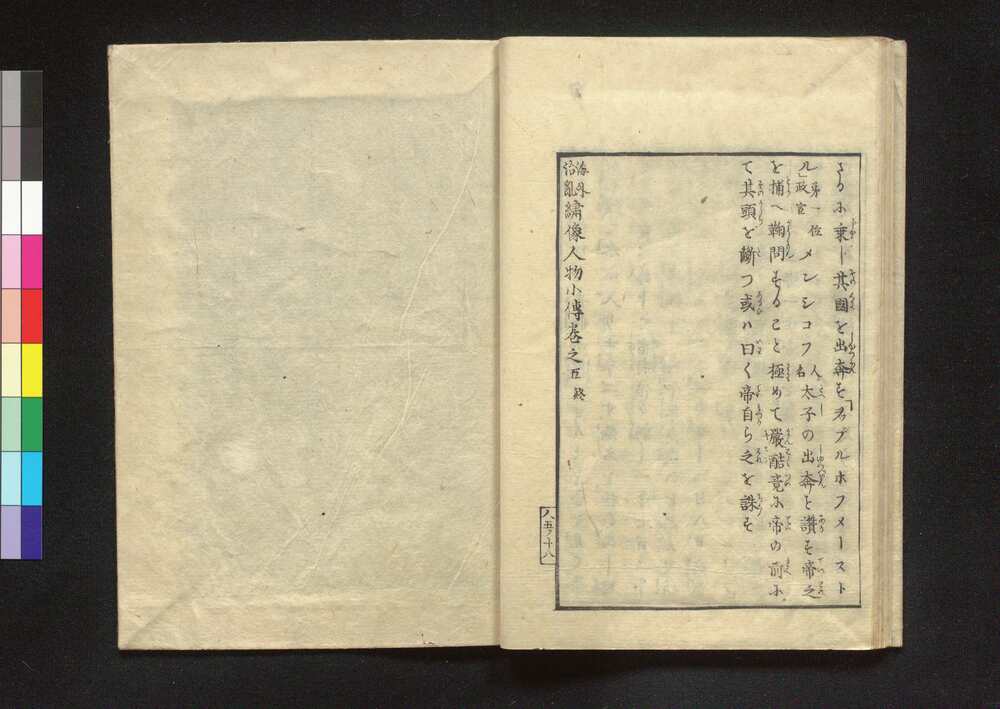 るに乗し其國を出奔す「ヲプルホフメースト
ル」第一位政官メンシコフ人名太子の出奔を讃す帝之
を捕へ鞠問することと極めて嚴酷竟に帝の前に
て其頭を斷つ或ハ曰く帝自ら之を誅す
海外治亂繡像人物小傳巻之五終
人五ノ十八